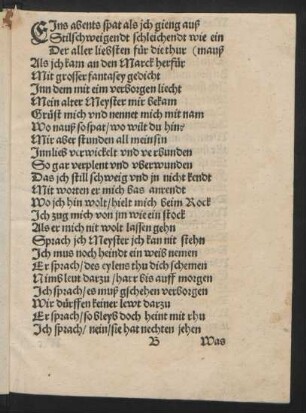 EIns abents spat als ich gieng auß
Stilschweigendt schleichendt wie ein
Der aller liebsten für die thur (mauß
Als ich kam an den Marck herfür
Mit grosser fantasey gedicht
Inn dem mit eim verborgen liecht
Mein alter Meyster mir bekam
Grüst mich vnd nennet mich mit nam
Wo nauß so spat/ wo wilt du hin?
Mir aber stunden all mein sin
Innlieb verwickelt vnd verbunden
So gar verplent vnd vberwunden
Das ich still schweig vnd jn nicht kendt
Mit worten er mich bas anrendt
Wo ich hin wolt/ hielt mich beim Rock
Ich zug mich von jm wie ein stock
Als er mich nit wolt lassen gehn
Sprach ich Meyster ich kan nit stehn
Ich mus noch heindt ein weib nemen
Er sprach/ des eylens thu dich schemen
Nims laut darzu/ harr bis auff morgen
Ich sprach/ es muß gschehen verborgen
Wir dürffen keiner lewt darzu
Er sprach/ so bleyb doch heint mit rhu
Ich sprach/ nein/ sie hat nechten jehen
B Was